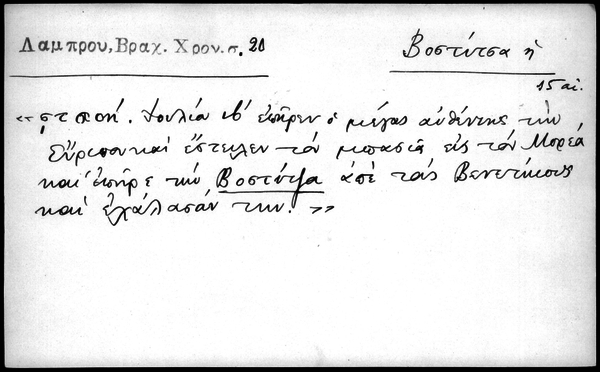 Λαμπρου, Βραχ. Χρον. σ. 20
Βοστίτσα ἡ
15 αἰ.
"ϛτποή. Ἰουλίω ιβ' ἐπῆρεν ὁ μέγας αὐθέντης τὴν
Εὔριπον καὶ ἔστειλεν τὸν μπασιᾶ εἰς τὸν Μορέα
καὶ ἐπῆρε τὴν Βοστίτζα ἀπὲ τοὺς Βενετίκους
καὶ ἐχάλασάν την."